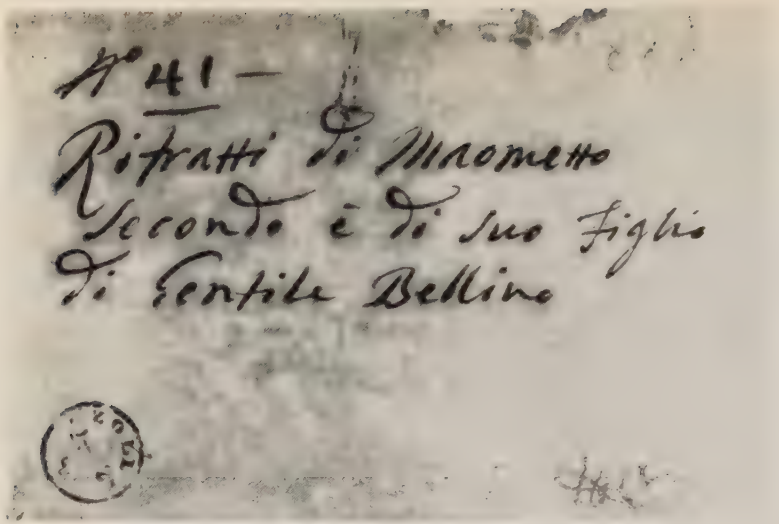 Nº 41 —
Ritratti di Maometto
secondo è di suo figlio
di Gentile Bellino